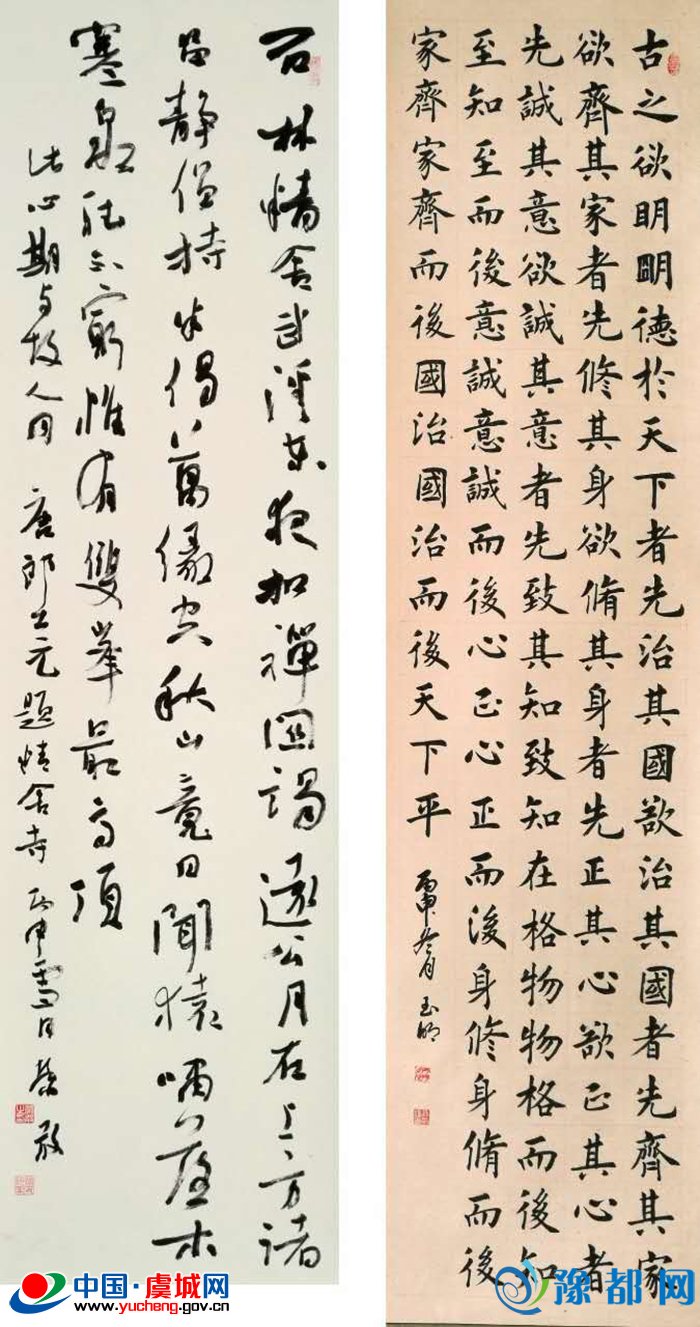 古之欲明明德於天下者先治其國欲治其國者先齊其家
欲齊其家者先修其身欲脩其身者先正其心欲正其心者
先誠其意欲誠其意者先致其知致知在格物物格而後知
至知至而後意誠意誠而後心正心正而後身修身脩而後
家齊家齊而後國治國治而後天下平 丙申冬月 玉明
石林精舍武溪東夜扣禪關謁遠公月在上方諸
品静僧持半偈萬緣空秋山竟日聞猿嘯落木
寒泉聽不窮惟有雙峯最高頂
此心期与故人同 唐郎士元題精舍寺 丙申雪月
中国·虞城网
www.yucheng.gov.cn
豫都网